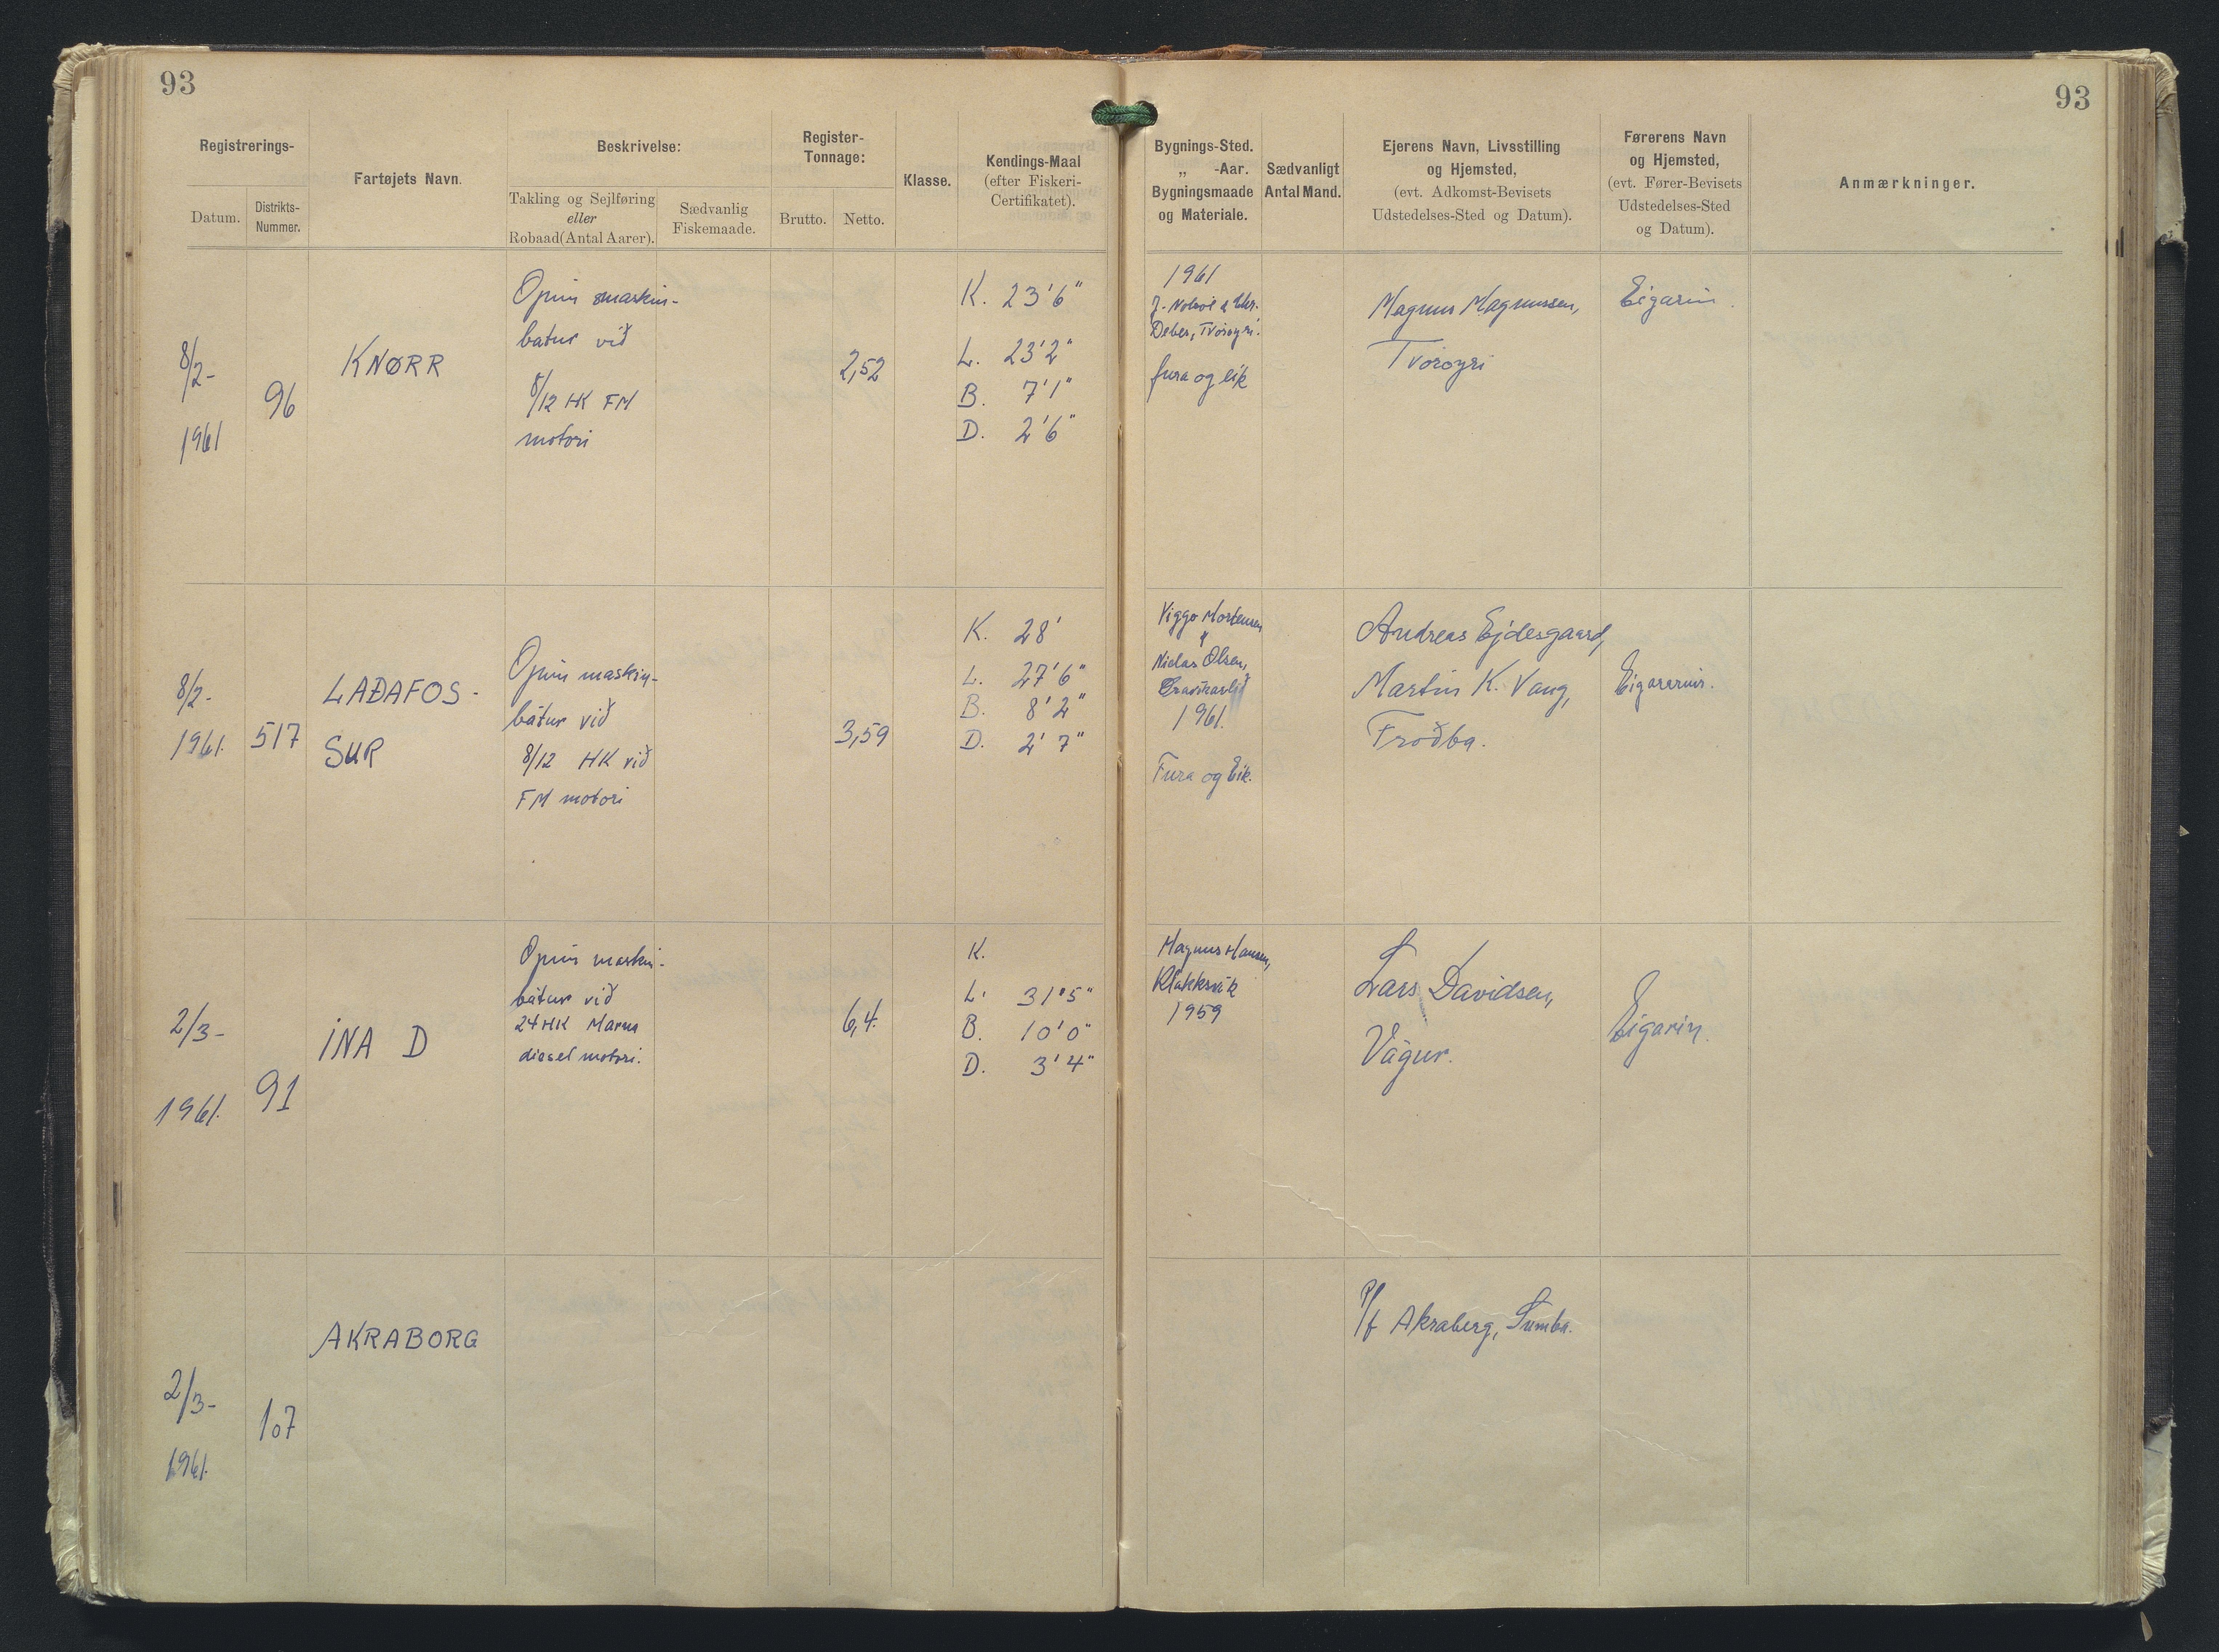 93
93
Registrerings-
Datum.
Distrikts-
Nummer.
Fartøjets Navn.
Beskrivelse:
Takling og Sejlføring
eller
Robaad (Antal Aarer).
Sædvanlig
Fiskemaade.
Register-
Tonnage:
Brutto.
Netto.
Klasse.
Kendings-Maal
(efter Fiskeri-
Certifikatet).
Bygnings-Sted.
„ -Aar.
Bygningsmaade
og Materiale.
Sædvanligt
Antal Mand.
Ejerens Navn, Livsstilling
og Hjemsted,
(evt. Adkomst-Bevisets
Udstedelses-Sted og Datum).
Førerens Navn
og Hjemsted,
(evt. Fører-Bevisets
Udstedelses-Sted
og Datum).
Anmærkninger.
8/2-
1961
96
KNØRR
Opin maskin-
batur við
8/12 HK FM
motori
2,52
K. 23'6"
L. 23'2"
B. 7'1"
D. 2'6"
1961
Tvøroyri.
fura og eik
Magnus Magnussen,
Tvøroyri
Eigarin.
8/2-
1961.
517
LAÐAFOS-
SUR
Opin maskin-
bátur við
8/12 HK við
FM motori
3,59
K. 28'
L. 27'6"
B. 8'2"
D. 2'7"
Viggo Mortensen
Niclas Olsen,
1961.
Fura og Eik.
Andreas Ejdesgaard,
Martin K. Vang,
Froðba.
Eigararnir.
2/3-
1961.
91
INA D
Opin maskin-
bátur við
24 HK Marna
diesel motori.
6,4.
K.
L. 31'5"
B. 10'0"
D. 3'4"
Magnus Hansen,
Klakksvík
1959
Lars Davidsen,
Vágur.
Eigarin.
2/3-
1961.
107
AKRABORG
P/f Akraberg, Sumba.